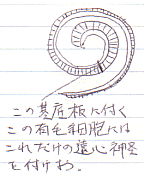 この基底板に付く
この有毛細胞には
これだけの遠心神経
を付けわ。